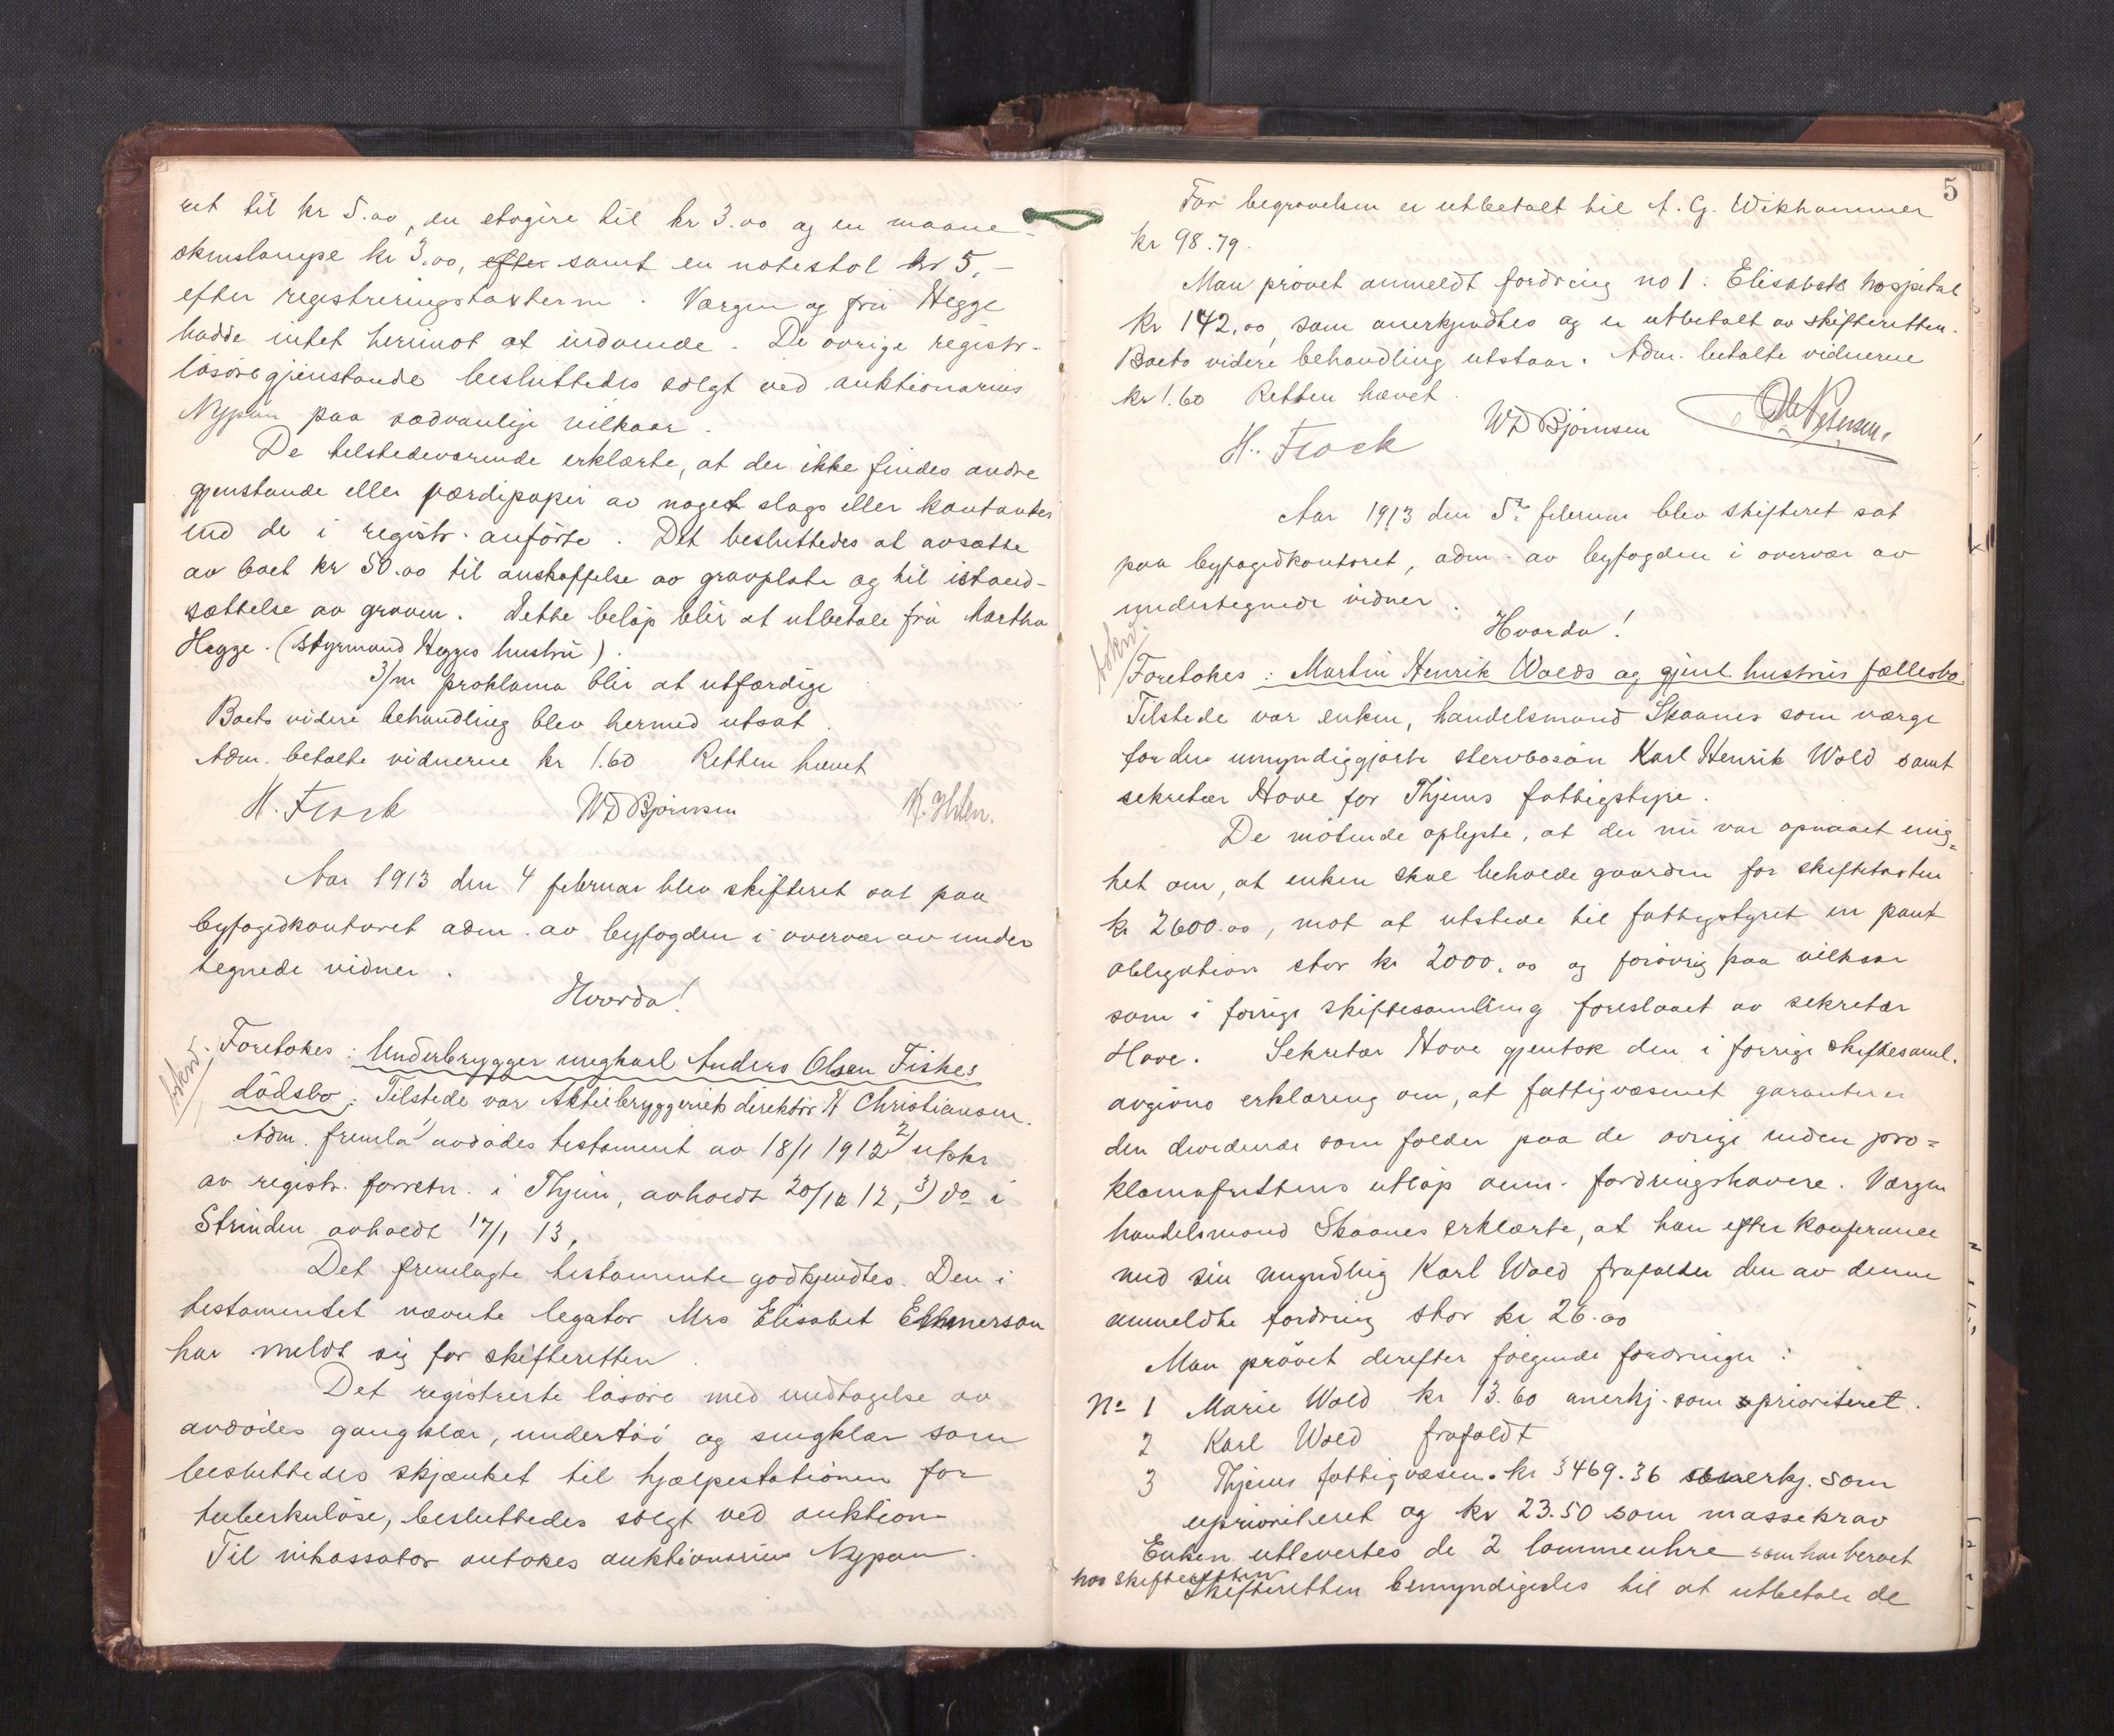 ret til kr 5.00, en etagire til kr 3.00 og en maane-
skinslampe kr 3.00, efter samt en notestol kr 5.-
efter registreringstaxterne. Værgen og fru Hegge
hadde intet herimot at indvende. De øvrige registr.
løsøregjenstande besluttedes solgt ved auktionarius
Nypan paa sædvanlige vilkaar.
De tilstedeværende erklærte, at der ikke findes andre
gjenstande eller værdipapir av noget slags eller kontanter
end de i registr. anførte. Det besluttedes at avsætte
av boet kr 50.00 til anskaffelse av gravplate og til istand-
sættelse av graven. Dette beløp blir at utbetale fru Martha
Hegge. (Styrmand Hegges hustru).
3/m proklama blir at utfærdige
Boets videre behandling blev hermed utsat.
Adm. betalte vidnerne kr 1.60 Retten hævet
H. Frock WD Bjørnsen K. Ihlen.
Aar 1913 den 4 februar blev skifteret sat paa
byfogdkontoret adm. av byfogden i overvær av under
tegnede vidner.
Hvorda!
Foretokes: Underbrygger ungkarl Anders Olsen Fiskes
dødsbo: Tilstede var Aktiebryggeriets direktør H Christiansen.
Adm. fremla 1) avdødes testament av 18/1 1912 2) utskr
av registr. forretn. i Thjem, avholdt 20/12 12, 3) do i
Strinden avholdt 17/1 13,
Det fremlagte testamente godkjendtes. Den i
testamentet nævnte legatar Mrs Elisabet Ethmerson
har meldt sig for skifteretten.
Det registrerte løsøre med undtagelse av
avdødes gangklær, undertøi og sengklær som
besluttedes skjænket til hjælpestationen for
tuberkuløse, besluttedes solgt ved auktion
Til inkassator antokes auktionarius Nypan.
5
For begravelsen er utbetalt til A. G. Wikhammer
kr 98.79.
Man prøvet anmeldt fordring no 1: Elisabeth hospital
kr 142.00, som anerkjendtes og er utbetalt av skifteretten.
Boets videre behandling utstaar. Adm. betalte vidnerne
kr 1.60 Retten hævet.
H. Frock WD Bjørnsen Ole Petersen.
Aar 1913 den 5te februar blev skifteret sat
paa byfogdkontoret, adm. av byfogden i overvær av
undertegnede vidner.
Hvorda!
Foretokes: Martin Henrik Wolds og gjenl. hustrus fællesbo.
Tilstede var enken, handelsmand Skaanes som værge
for den umyndiggjorte stervbosøn Karl Henrik Wold samt
sekretær Hove for Thjems fattigstyre.
De møtende oplyste, at der nu var opnaaet enig=
het om, at enken skal beholde gaarden for skiftetaxten
kr 2600.00, mot at utstede til fattigstyret en pant
obligation stor kr 2000.00 og forøvrig paa vilkaar
som i forrige skiftesamling foreslaaet av sekretær
Hove. Sekretær Hove gjentok den i forrige skiftesaml.
avgivne erklæring om, at fattigvæsenet garanterer
den dividende som falder paa de øvrige inden pro=
klamafristens utløp anm. fordringshavere. Værgen
handelsmand Skaanes erklærte, at han efter konferance
med sin myndling Karl Wold frafalder den av denne
anmeldte fordring stor kr 26.00
Man prøvet derefter følgende fordringer:
No 1 Marie Wold kr 13.60 anerkj. som uprioriteret.
2 Karl Wold frafaldt
3 Thjems fattigvæsen kr 3469.36 anerkj. som
uprioriteret og kr 23.50 som massekrav
Enken utlevertes de 2 lommeuhre som har beroet
hos skifteretten
Skifteretten bemyndigedes til at utbetale de